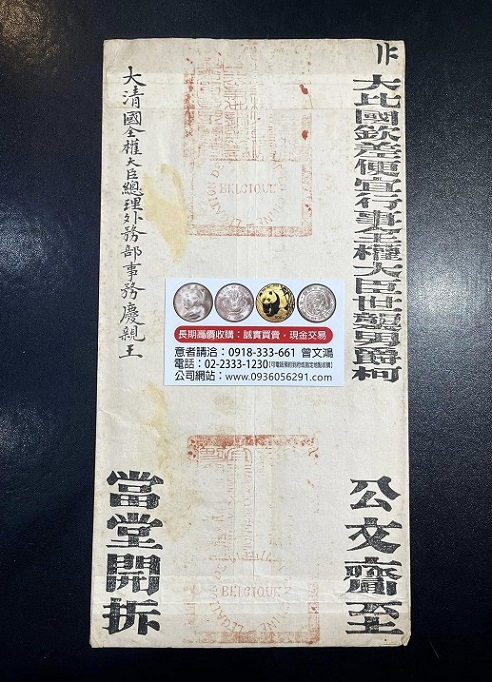 大比國欽差便宜行事全權大臣世襲男爵柯
公文齎至
大清國全權大臣總理外務部事務慶親王
當堂開拆
BELGIQUE
長期高價收購：誠實買賣，現金交易
意者請洽：0918-333-661 曾文鴻
電話：02-2333-1230
公司網站：www.0936056291.com
BELGIQUE